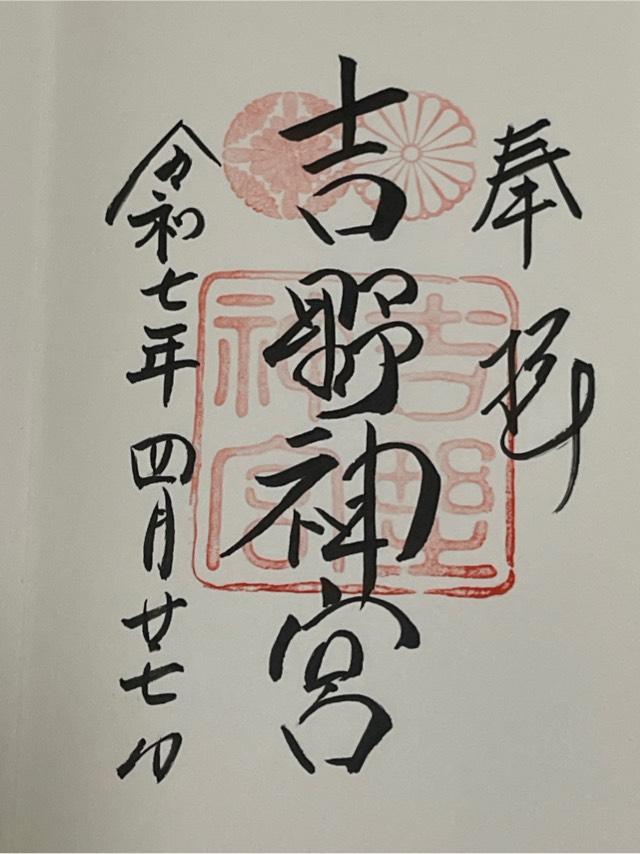 奉拝
吉野神宮
吉野
神宮
令和七年四月廿七日